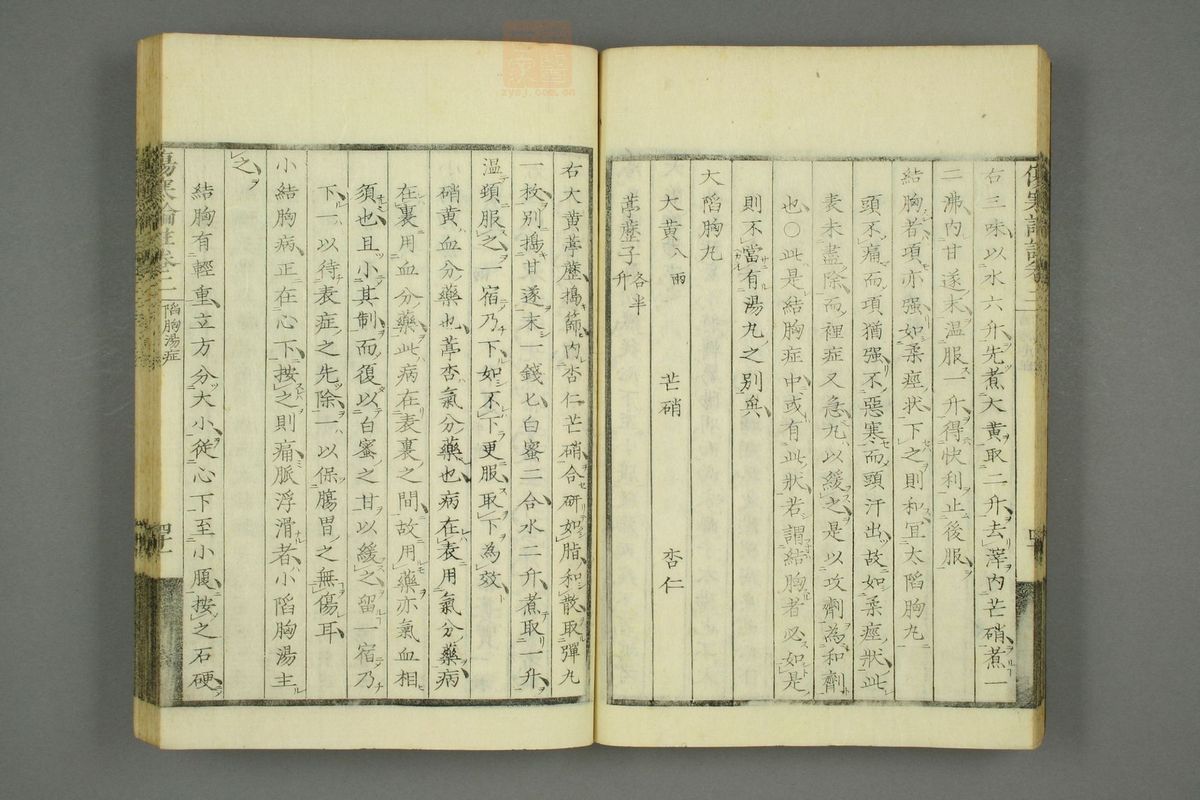 右三味以水六升先煮大黄取二升去滓内芒硝煮一
二沸内甘遂末温服一升得快利止後服
結胸者項亦强如柔痙状下之則和宜大陷胸丸
頭不痛而項猶强不惡寒而頭汗出故如柔痙狀此
表未盡除而裡症又急丸以緩之是以攻劑為和劑
也○此是結胸症中或有此狀若謂結胸者必如是
則不當有湯丸之別矣
大陷胸丸
大黄八兩 芒硝 杏仁
葶藶子各半升
右大黄葶藶搗篩内杏仁芒硝合研如脂和散取彈丸
一枚别搗甘遂末一錢匕白蜜二合水二升煮取一升
温頓服之一宿乃下如不下更服取下為效
硝黄血分藥也葶杏氣分藥也病在表用氣分藥病
在裏用血分藥此病在表裏之間故用藥亦氣血相
須也且小其制而復以白蜜之甘以緩之留一宿乃
下一以待表症之先除一以保腸胃之無傷耳
小結胸病正在心下按之則痛脈浮滑者小陷胸湯主
之
結胸有輕重立方分大小從心下至小腹按之石硬
傷寒論註卷二 陷胸湯症